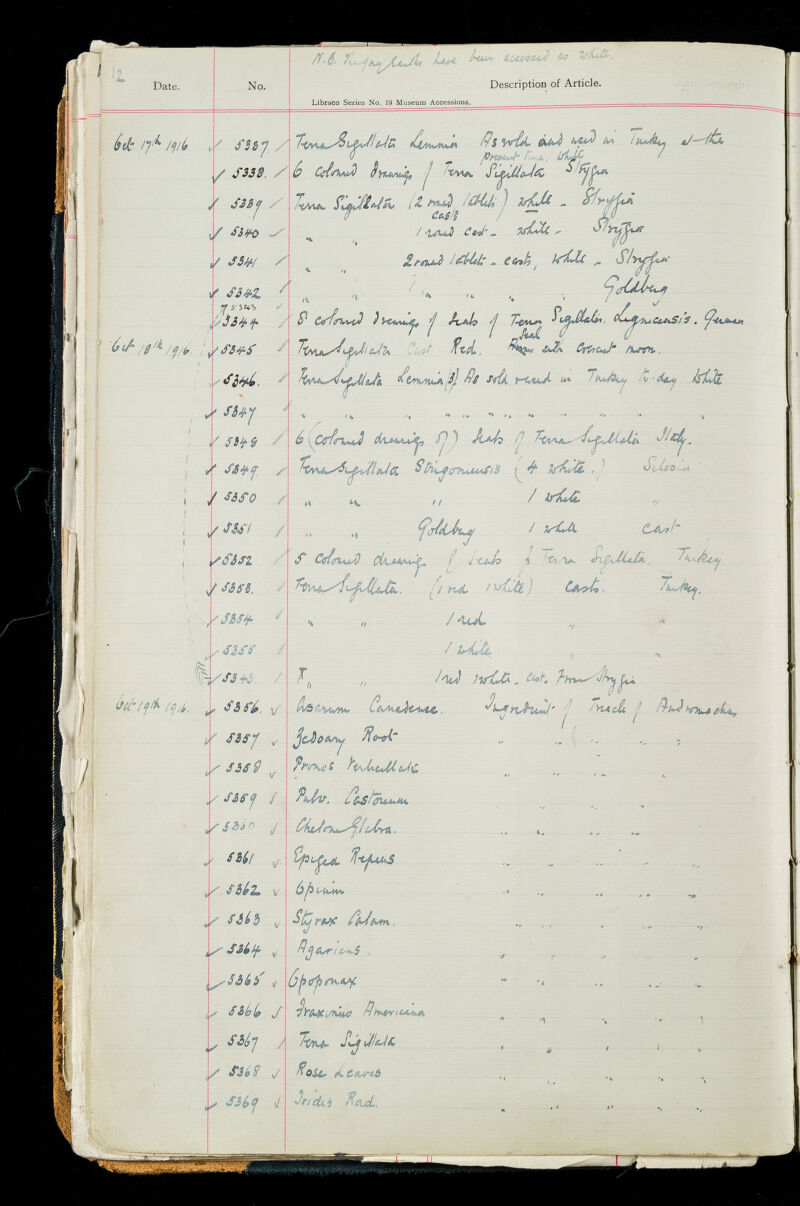 N.B. The grey casts have been accessed as white.
12
Date. No. Description of Article.
Libraco Series No. 19 Museum Accessions.
Oct 17th 1916 5337 Terra Sigillata Lemnia As sold and used in Turkey at the
present time. White
5338. 6 coloured drawings of Terra Sigillata Strygia
5339 Terra Sigillata (2 round tablets) white - Strygia
casts
5340 " " 1 round cast - white - Strygia
5341 " " 2 round tablets - casts, white - Strygia
5342 " " 1 " " " " Goldberg
5343
5344 8 coloured drawings of Seals of Terra Sigillata. Lignicensis. German
Seal
Oct 18th 1916. 5345 Terra Sigillata Cast. Red. with crescent moon.
5346. Terra Sigillata Lemnia (3) As sold & used in Turkey to-day White
5347 " " " " " " " " " " "
5348 6 (coloured drawings of) Seals of Terra Sigillata Italy.
5349 Terra Sigillata Strigoniensis (4 white.) Silesia
5350 " " " 1 white "
5351 " " Goldberg 1 white cast
5352 5 coloured drawings of Seals of Terra Sigillata. Turkey
5353. Terra Sigillata. (1 red 1 white) casts. Turkey.
5354 " " 1 red " "
5355 1 white " "
5343. T " " 1 red white, cast. From Strygia
Oct 19th 1916. 5356. Asarum Canadense. Ingredient of Treacle of Andromachus
5357 Zedoary Root " " " " "
5358 Prinos Verticillatis " " " "
5359 Pulv. Castoreum " " " "
5360 Chelone Glabra. " " " "
5361 Epigea Repens " " " " "
5362 Opium " " " " "
5363 Styrax Calam. " " " " "
5364 Agaricus. " " " " "
5365 Opoponax " " " " "
5366 Fraxinus Americana " " " " "
5367 Terra Sigillata " " " " "
5368 Rose Leaves " " " " "
5369 Iridis Rad. " " " " "